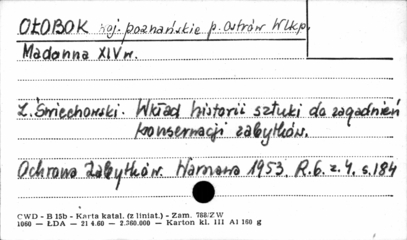 OŁOBOK woj. poznańskie p. Ostrów Wlkp.
Madonna XIV w.
Z. Świechowski. Wkład historii sztuki do zagadnień
konserwacji zabytków.
Ochrona Zabytków. Warszawa 1953. R. 6. z. 4. s. 184
CWD - B 15b - Karta katal. (z liniat.) - Zam. 788/ZW
1060 — ŁDA — 21 4.60 — 2.360.000 — Karton kl. III A1 160 g